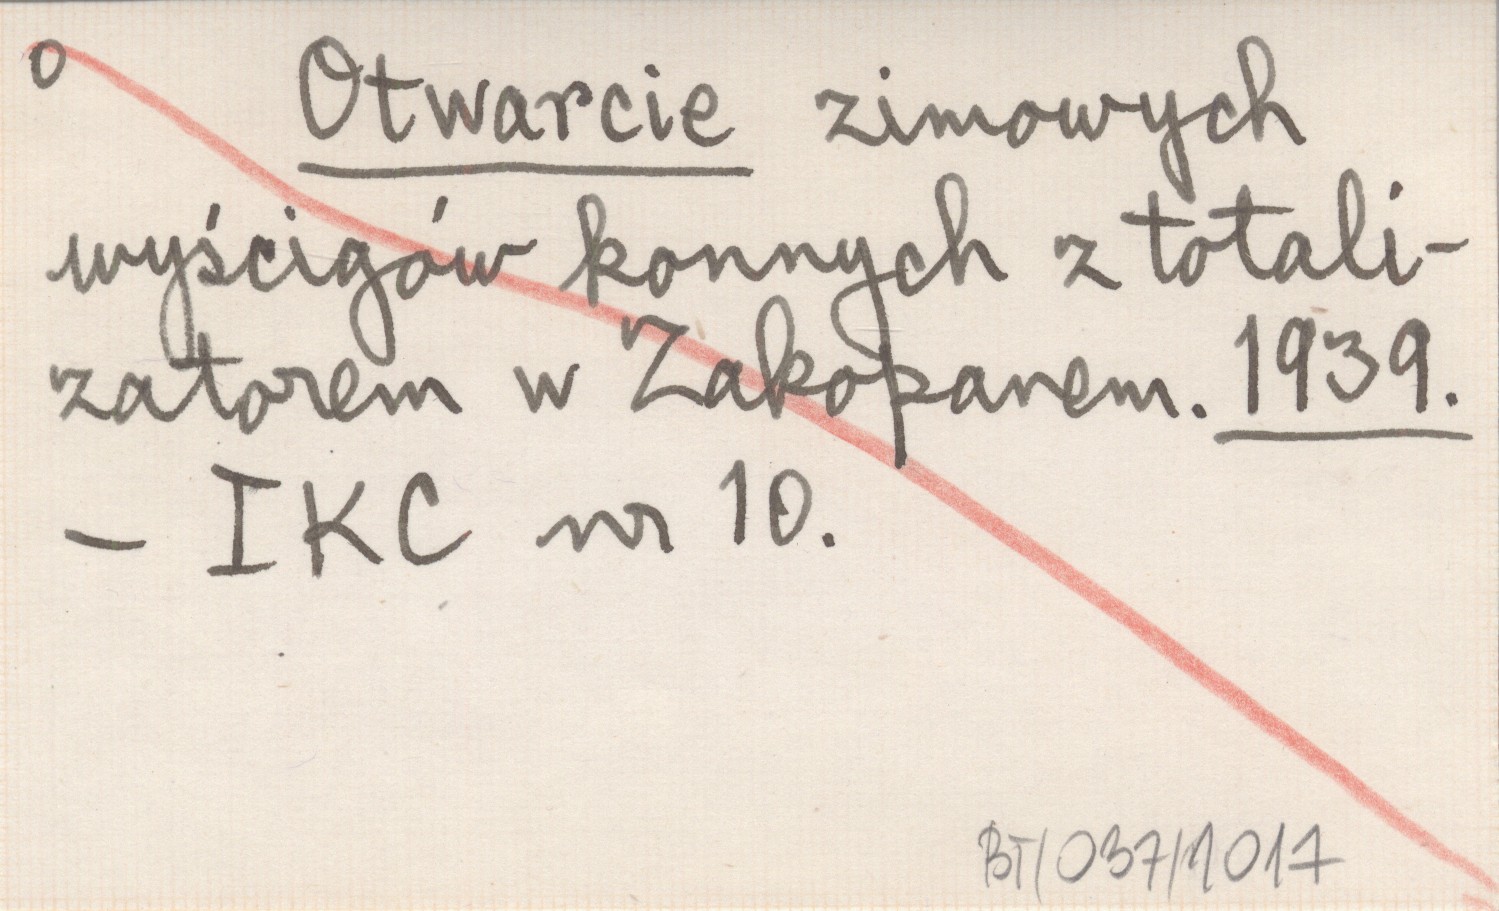 o Otwarcie zimowych
wyścigów konnych z totali-
zatorem w Zakopanem. 1939.
– IKC nr 10.
BT/037/1017